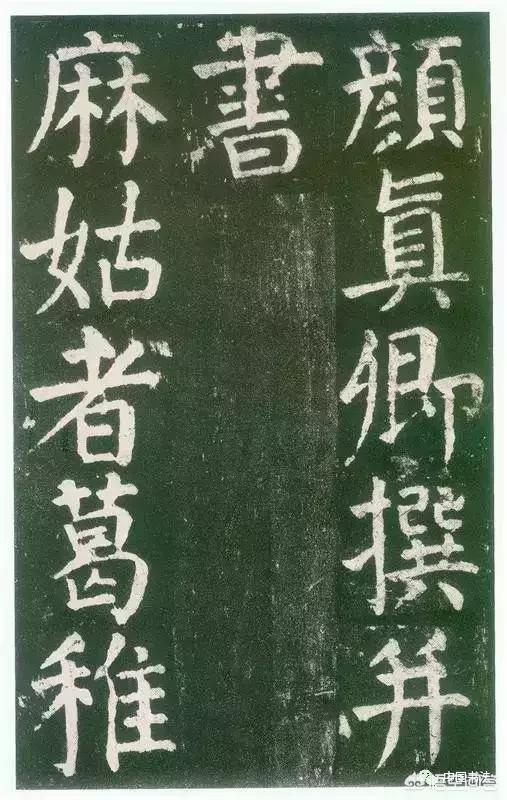 顏眞卿撰并
書
麻姑者葛稚
中国书法